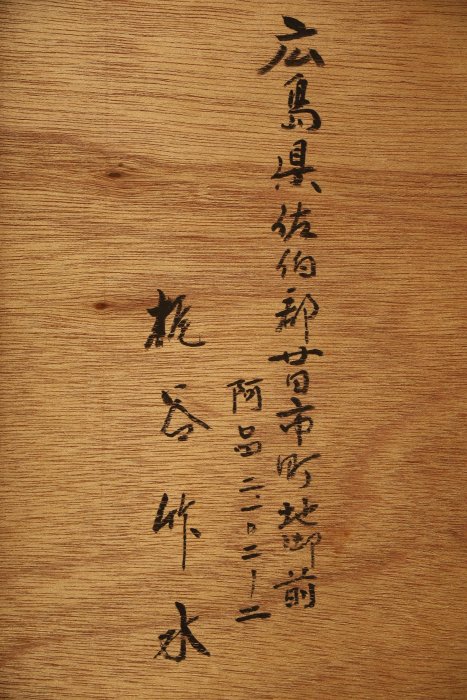 広島県佐伯郡廿日市町地御前
阿品二一〇二ー二
梶谷竹水